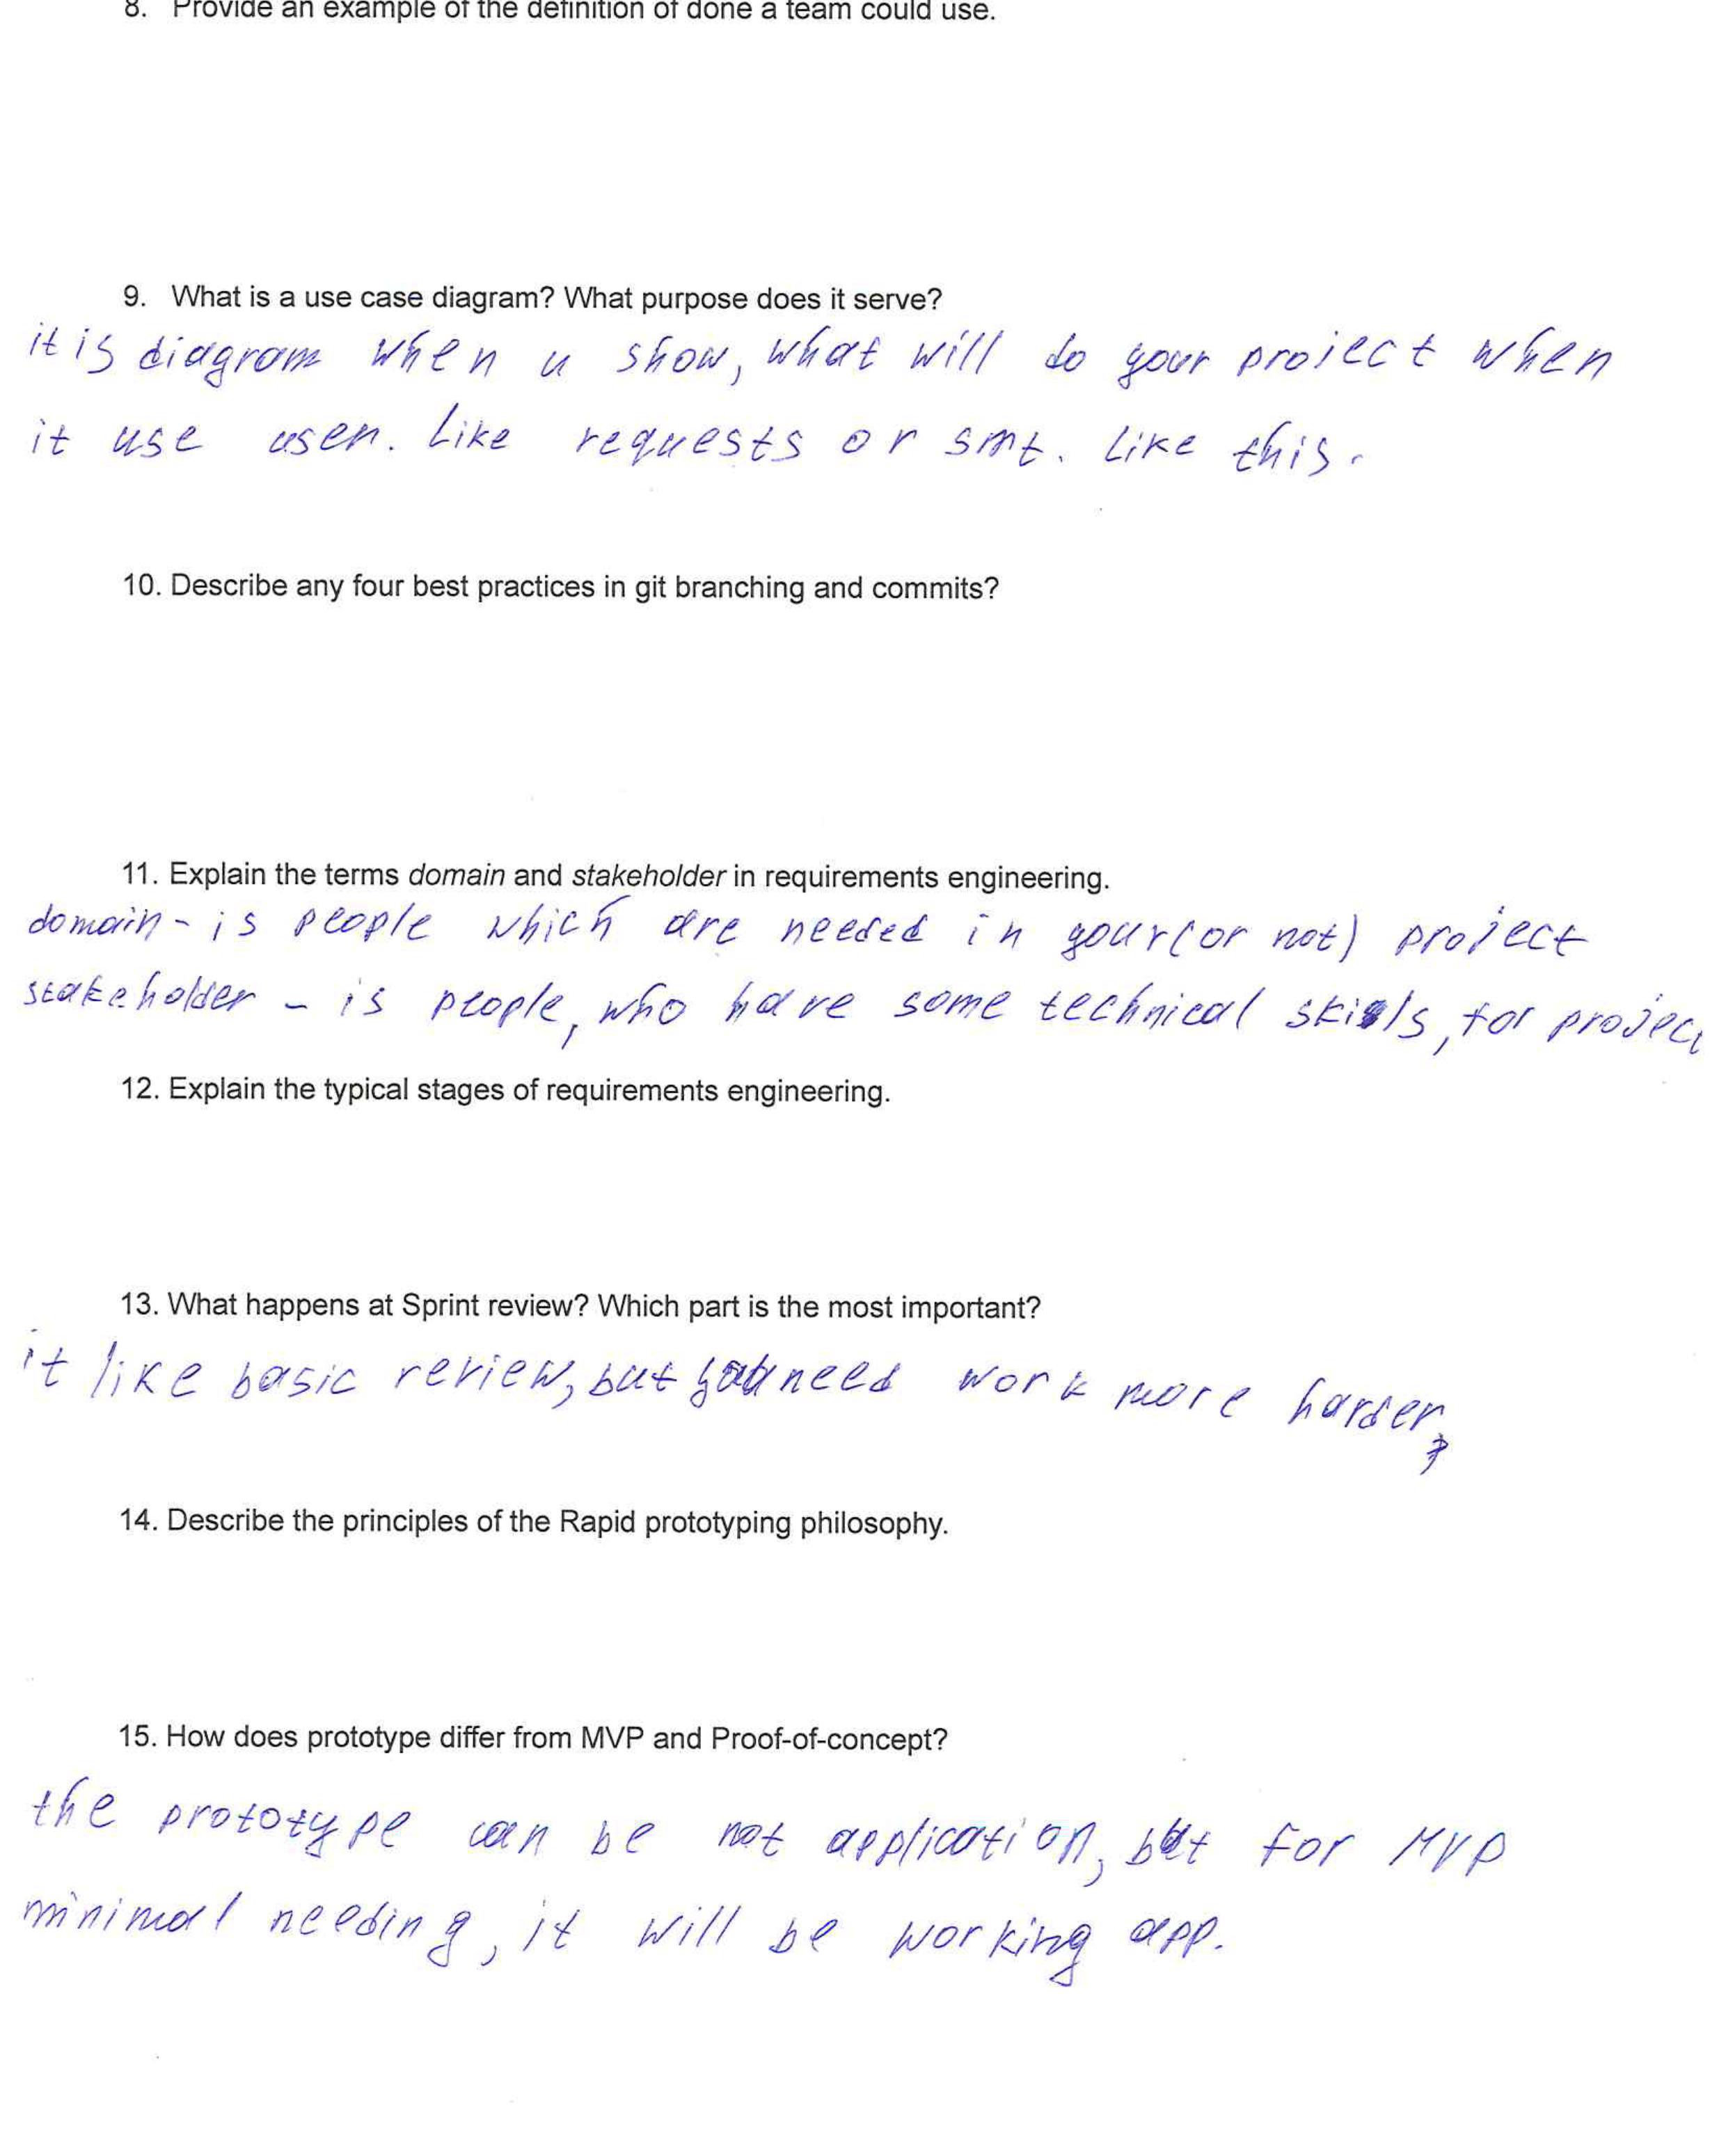 8. Provide an example of the definition of done a team could use.
9. What is a use case diagram? What purpose does it serve?
it is diagram when u show, what will do your project when
it use user. Like requests or smt. like this.
10. Describe any four best practices in git branching and commits?
11. Explain the terms domain and stakeholder in requirements engineering.
domain - is people which are needed in your (or not) project
stakeholder - is people, who have some technical skills, for projec
12. Explain the typical stages of requirements engineering.
13. What happens at Sprint review? Which part is the most important?
it like basic review, but you need work more harder,
14. Describe the principles of the Rapid prototyping philosophy.
15. How does prototype differ from MVP and Proof-of-concept?
the prototype can be not application, but for MVP
minimal needing, it will be working app.